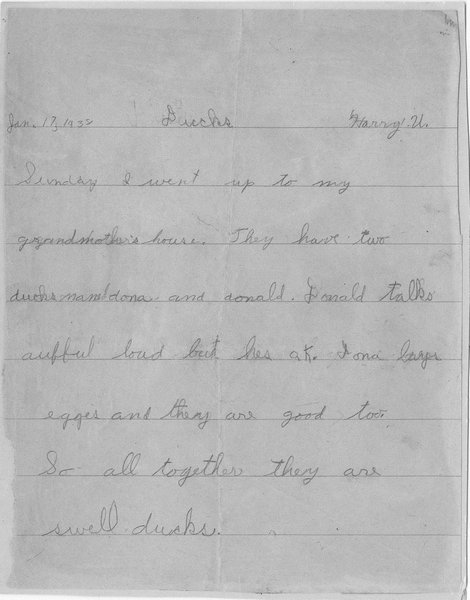 Jan. 17, 1932 Duccks Harry U.
Sunday I went up to my
grandmother's house. They have two
ducks named dona and donald. Donald talks
aufful loud but hes ok. Dona layes
egges and they are good too.
So all together they are
swell ducks.